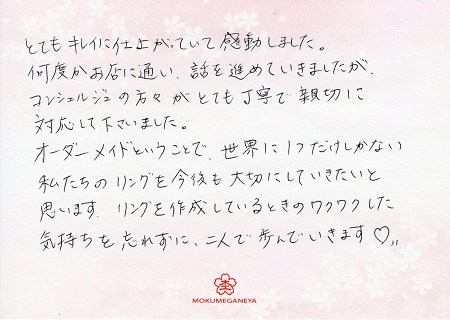 とてもキレイに仕上がっていて感動しました。
何度かお店に通い、話を進めていきましたが、
コンシェルジュの方々がとても丁寧で親切に
対応して下さいました。
オーダーメイドということで、世界に1つだけしかない
私たちのリングを今後も大切にしていきたいと
思います。リングを作成しているときのワクワクした
気持ちを忘れずに、二人で歩んでいきます♡,,
MOKUMEGANEYA